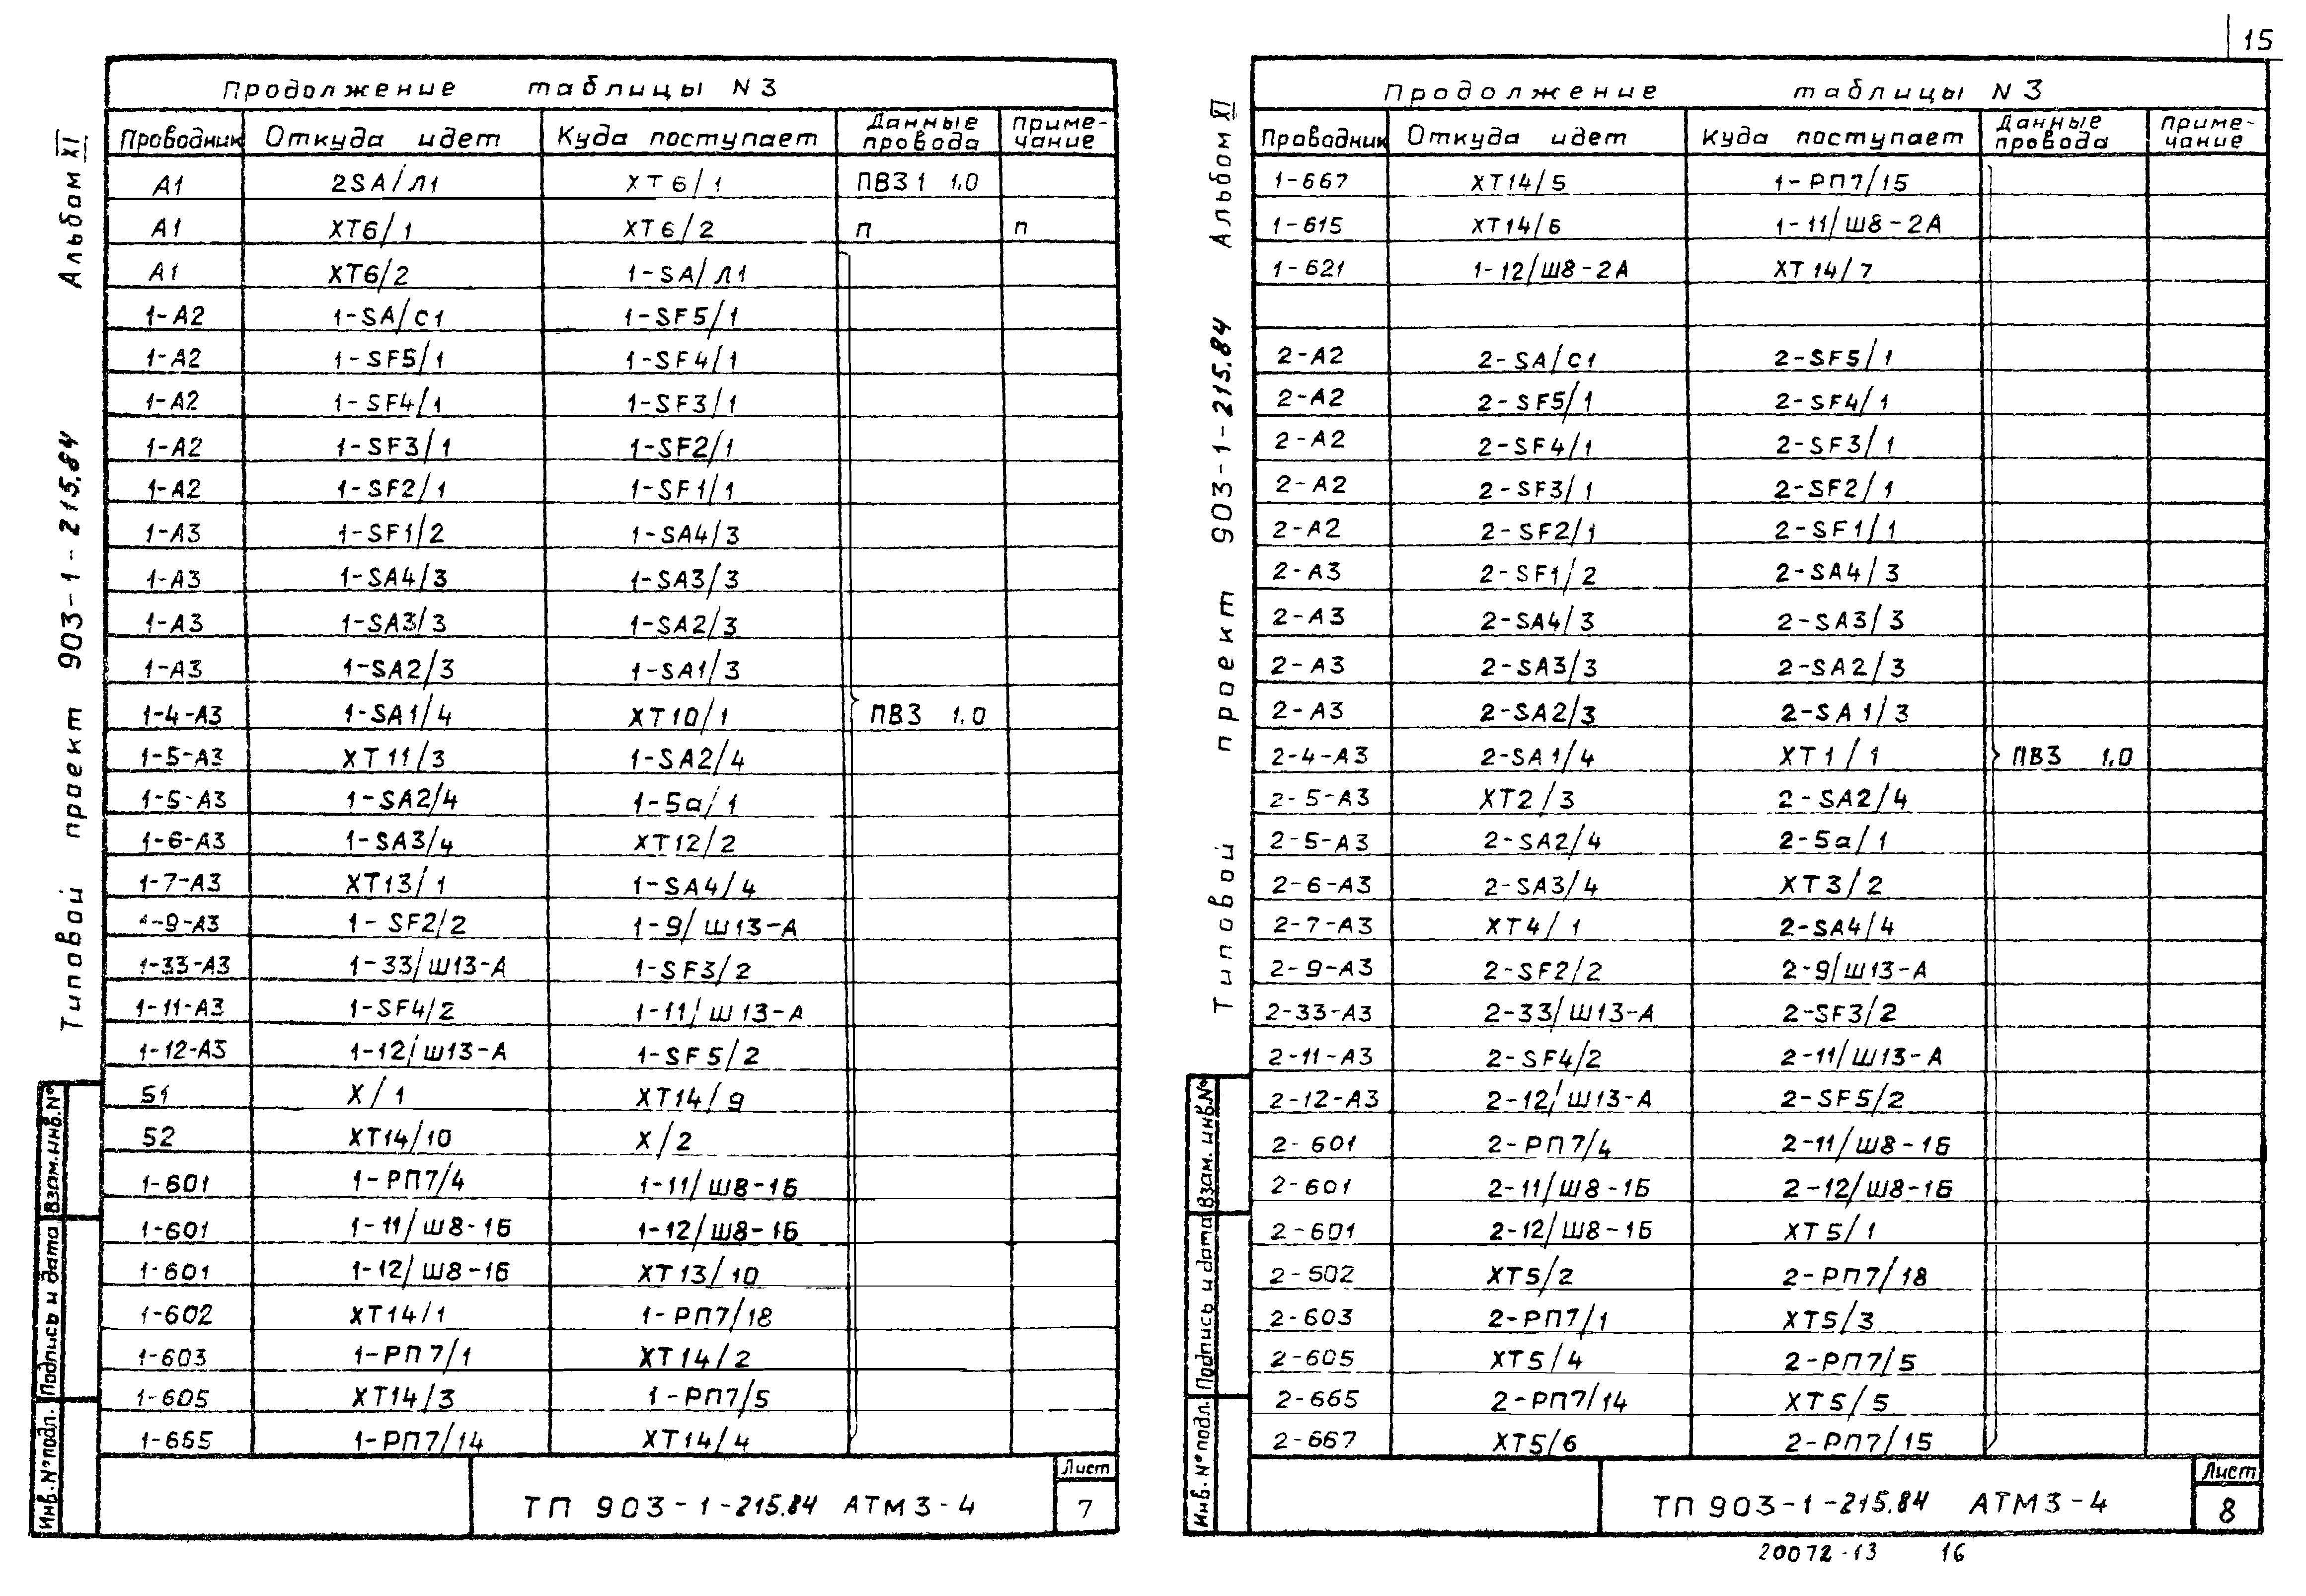 15
Альбом XI
Типовой проект 903-1-215.84
Продолжение таблицы N3
Проводник Откуда идет Куда поступает Данные провода Приме-чание
А1 2SA/Л1 ХТ6/1 ПВ31 1,0
А1 ХТ6/1 ХТ6/2 п п
А1 ХТ6/2 1-SA/Л1
1-А2 1-SA/С1 1-SF5/1
1-А2 1-SF5/1 1-SF4/1
1-А2 1-SF4/1 1-SF3/1
1-А2 1-SF3/1 1-SF2/1
1-А2 1-SF2/1 1-SF1/1
1-А3 1-SF1/2 1-SA4/3
1-А3 1-SA4/3 1-SA3/3
1-А3 1-SA3/3 1-SA2/3
1-А3 1-SA2/3 1-SA1/3
1-4-А3 1-SA1/4 ХТ10/1 ПВ3 1,0
1-5-А3 ХТ11/3 1-SA2/4
1-5-А3 1-SA2/4 1-5а/1
1-6-А3 1-SA3/4 ХТ12/2
1-7-А3 ХТ13/1 1-SA4/4
1-9-А3 1-SF2/2 1-9/Ш13-А
1-33-А3 1-33/Ш13-А 1-SF3/2
1-11-А3 1-SF4/2 1-11/Ш13-А
1-12-А3 1-12/Ш13-А 1-SF5/2
51 Х/1 ХТ14/9
52 ХТ14/10 Х/2
1-601 1-РП7/4 1-11/Ш8-1Б
1-601 1-11/Ш8-1Б 1-12/Ш8-1Б
1-601 1-12/Ш8-1Б ХТ13/10
1-602 ХТ14/1 1-РП7/18
1-603 1-РП7/1 ХТ14/2
1-605 ХТ14/3 1-РП7/5
1-665 1-РП7/14 ХТ14/4
Инв.N°подл. Подпись и дата Взам.инв.N°
ТП 903-1-215.84 АТМ3-4
Лист
7
Альбом XI
Типовой проект 903-1-215.84
Продолжение таблицы N3
Проводник Откуда идет Куда поступает Данные провода Приме-чание
1-667 ХТ14/5 1-РП7/15
1-615 ХТ14/6 1-11/Ш8-2А
1-621 1-12/Ш8-2А ХТ14/7
2-А2 2-SA/С1 2-SF5/1
2-А2 2-SF5/1 2-SF4/1
2-А2 2-SF4/1 2-SF3/1
2-А2 2-SF3/1 2-SF2/1
2-А2 2-SF2/1 2-SF1/1
2-А3 2-SF1/2 2-SA4/3
2-А3 2-SA4/3 2-SA3/3
2-А3 2-SA3/3 2-SA2/3
2-А3 2-SA2/3 2-SA1/3
2-4-А3 2-SA1/4 ХТ1/1 ПВ3 1,0
2-5-А3 ХТ2/3 2-SA2/4
2-5-А3 2-SA2/4 2-5а/1
2-6-А3 2-SA3/4 ХТ3/2
2-7-А3 ХТ4/1 2-SA4/4
2-9-А3 2-SF2/2 2-9/Ш13-А
2-33-А3 2-33/Ш13-А 2-SF3/2
2-11-А3 2-SF4/2 2-11/Ш13-А
2-12-А3 2-12/Ш13-А 2-SF5/2
2-601 2-РП7/4 2-11/Ш8-1Б
2-601 2-11/Ш8-1Б 2-12/Ш8-1Б
2-601 2-12/Ш8-1Б ХТ5/1
2-502 ХТ5/2 2-РП7/18
2-603 2-РП7/1 ХТ5/3
2-605 ХТ5/4 2-РП7/5
2-665 2-РП7/14 ХТ5/5
2-667 ХТ5/6 2-РП7/15
Инв.N°подл. Подпись и дата Взам.инв.N°
ТП 903-1-215.84 АТМ3-4
Лист
8
20072-13 16